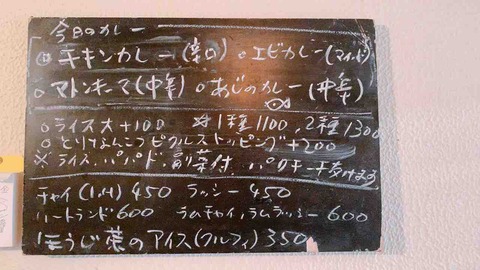 今日のカレー
○チキンカレー(辛口) ○エビカレー(マイルド)
○マトンキーマ(中辛) ○あじのカレー(中辛)
○ライス大+100 ※1種1100, 2種1300
○とりなんこつピクルストッピング+200
※ライス、パパド、副菜付 パクチー
チャイ(I,H)450 ラッシー450
ハートランド600 ラムチャイ、ラムラッシー600
ほうじ茶のアイス(クルフィ)350